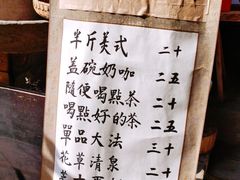 半斤美式 二十
盖碗奶咖 二五
隨便喝點茶 二十
喝點好的茶 二五
單品大法 三十
草清泉 二
花